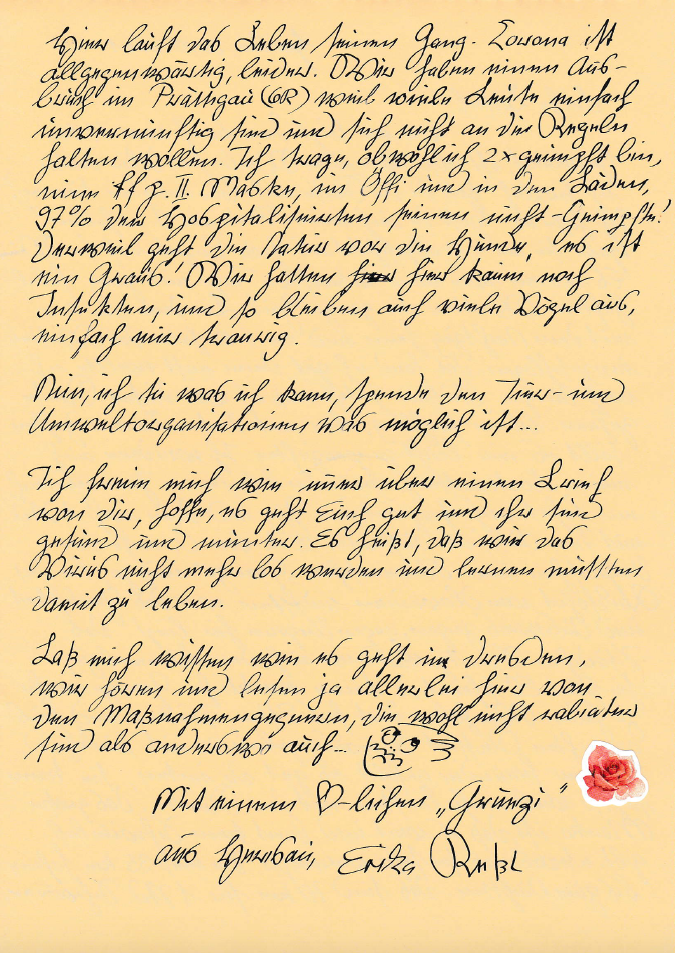 Hier läuft das Leben seinen Gang. Corona ist
allgegenwärtig, leider. Wir haben einen Aus-
bruch im Prättigau (GR) weil viele Leute einfach
unvernünftig sind und sich nicht an die Regeln
halten wollen. Ich trage, obwohl ich 2x geimpft bin,
eine ff p. II. Maske, im Öffi und in den Läden,
97% der Hospitalisierten seinen nicht-Geimpfte!
Derweil geht die Natur vor die Hunde, es ist
ein Graus! Wir hatten hier kaum noch
Insekten, und so bleiben auch viele Vögel aus,
einfach nur traurig.
Nun, ich tu was ich kann, spende den Tier- und
Umweltorganisationen was möglich ist...
Ich freue mich wie immer über einen Brief
von dir, hoffe, es geht Euch gut und ihr sind
gesund und munter. Es heißt, daß wir das
Virus nicht mehr los werden und lernen müssten
damit zu leben.
Laß mich wissen wie es geht in Dresden,
wir hören und lesen ja allerlei hier von
den Maßnahmengegnern, die wohl nicht rabiater
sind als anderswo auch...
Mit einem ♡-lichen „Grüezi"
aus Herisau, Erika